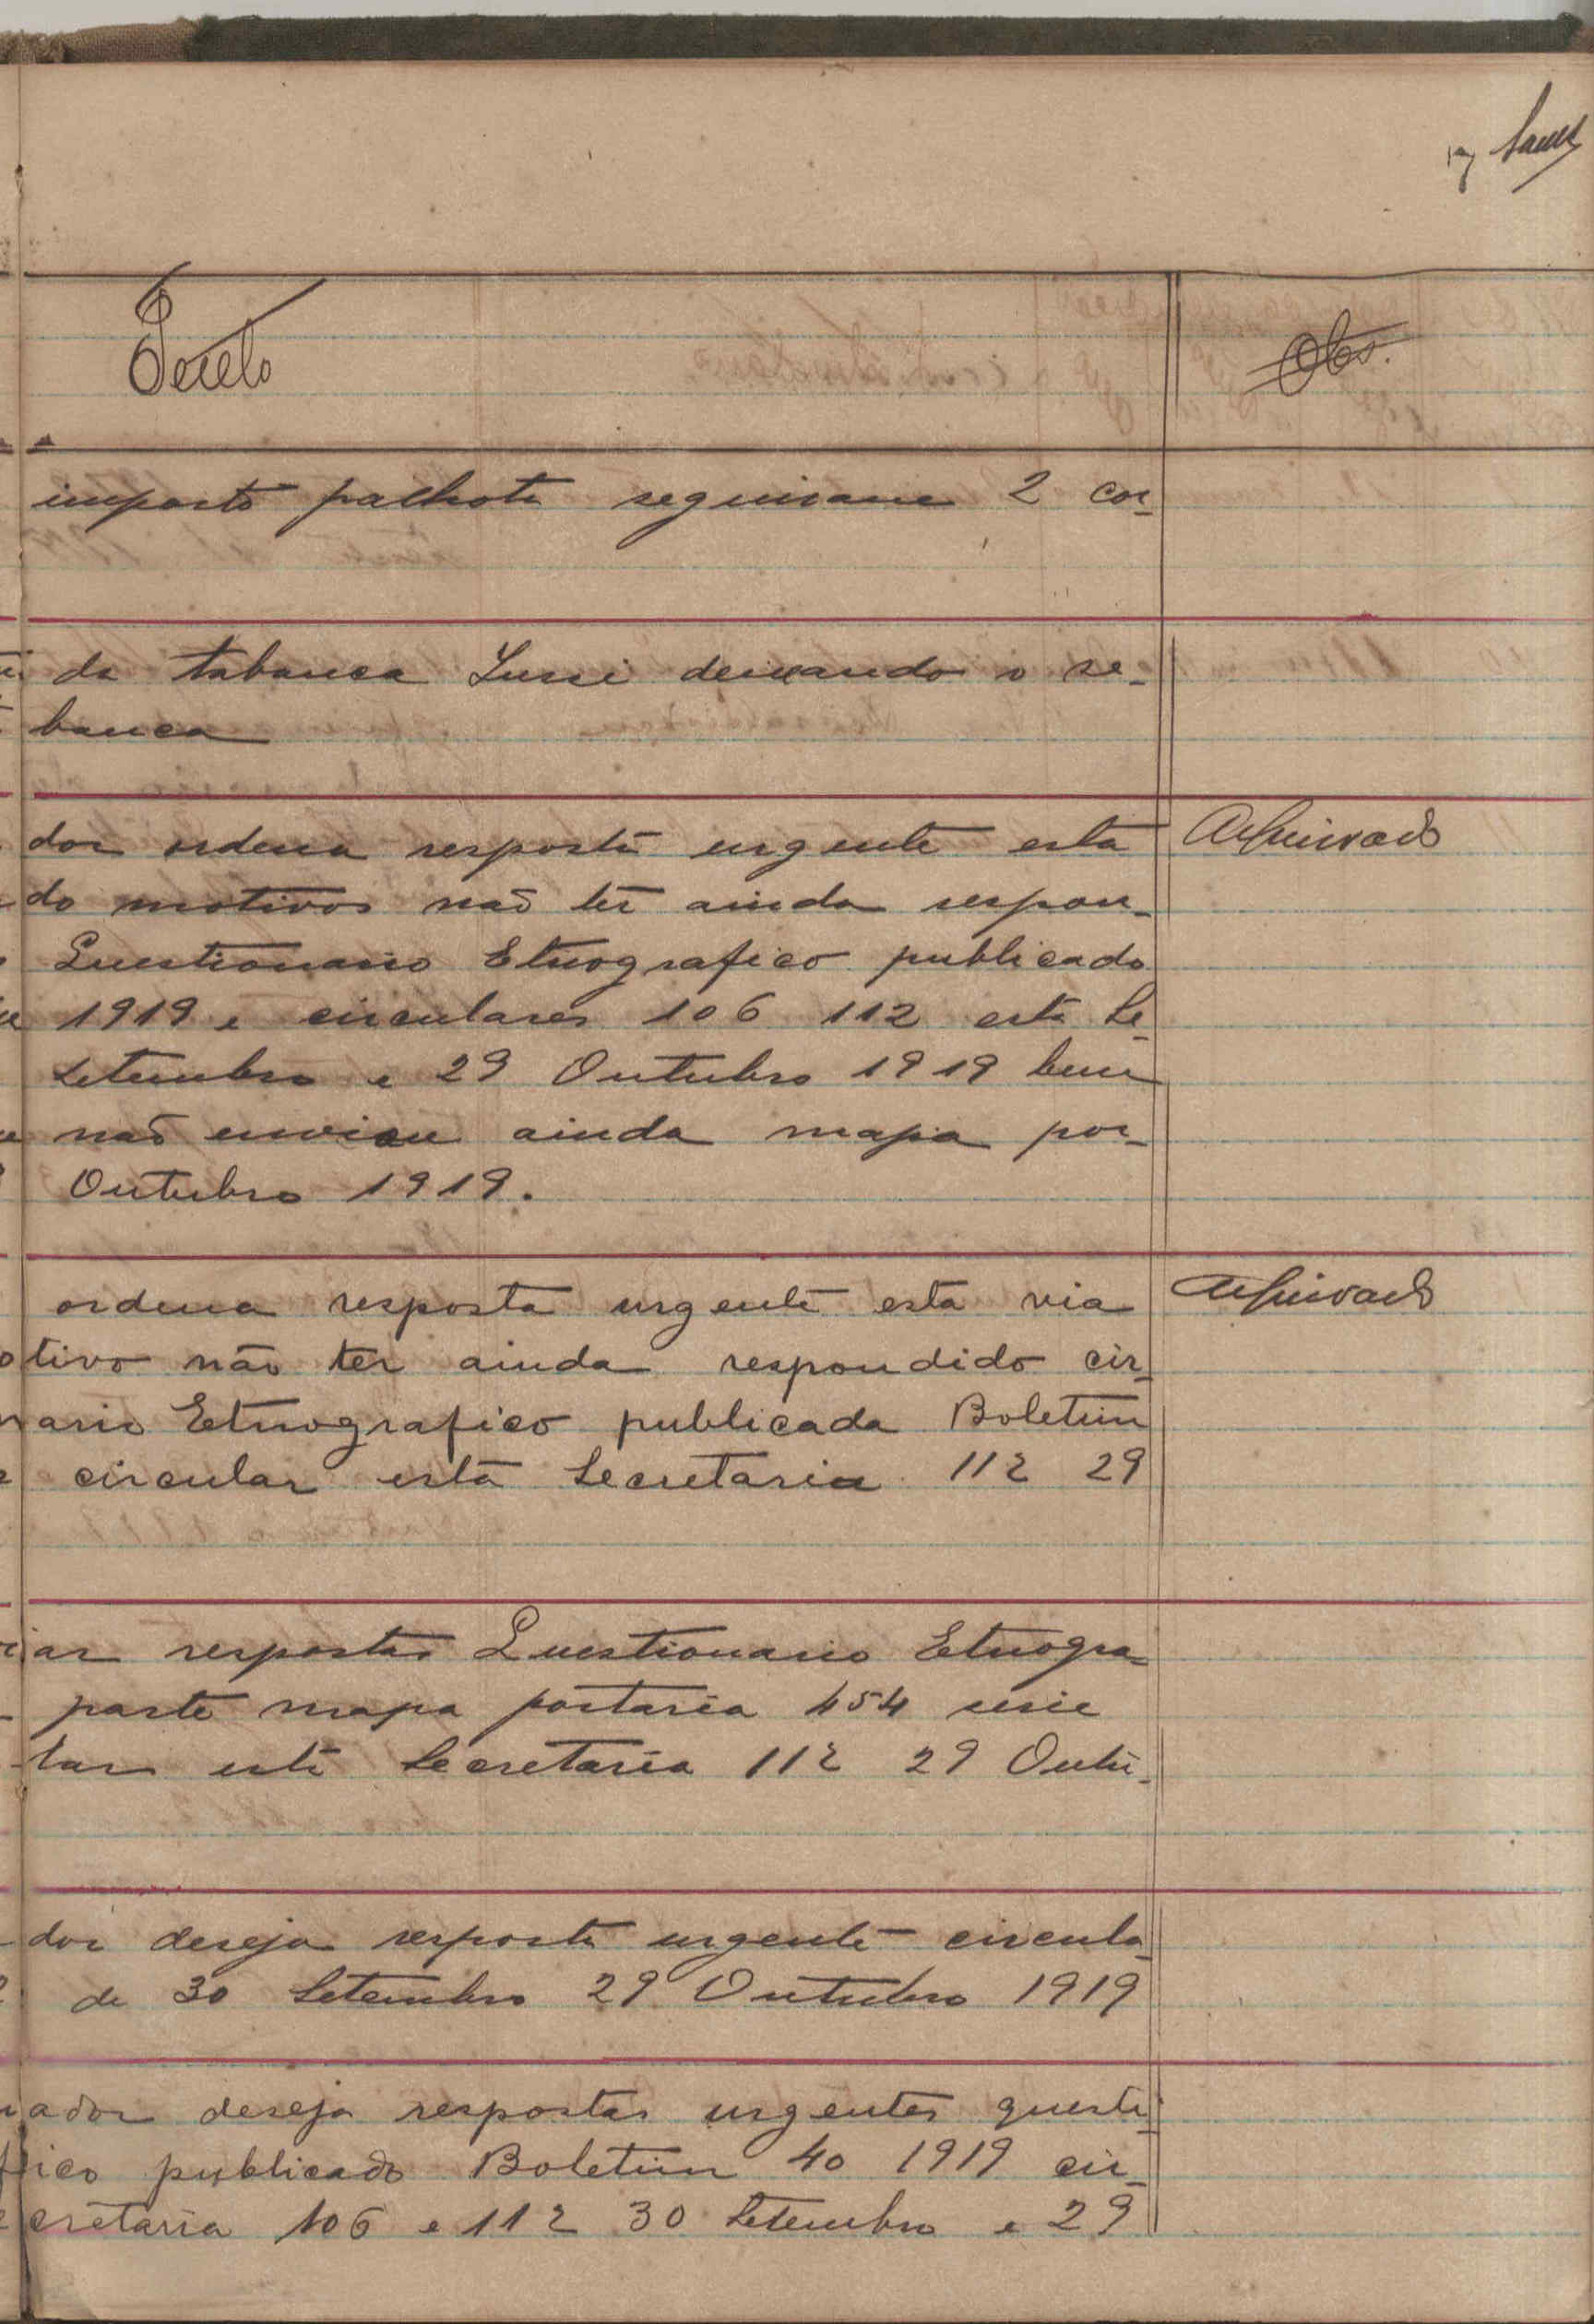 17
Texto
Obs.
imposto palhota seguiram 2 cor-
da tabanca Sussi deixando o re-
banca
dor ordena resposta urgente esta
Arquivado
do motivos não ter ainda respon-
Questionario Etnografico publicado
1919 e circulares 106 112 esta Se-
Setembro e 29 Outubro 1919 bem
não enviou ainda mapa por-
Outubro 1919.
ordena resposta urgente esta via
Arquivado
tivo não ter ainda respondido cir-
nario Etnografico publicada Boletim
circular esta Secretaria 112 29
iar respostas Questionario Etnogra-
parte mapa portaria 454
lar esta Secretaria 112 29 Outu-
dor deseja resposta urgente circula
de 30 Setembro 29 Outubro 1919
ador deseja respostas urgentes questi-
fico publicado Boletim 40 1919 cir-
ecretaria 106 e 112 30 Setembro e 29